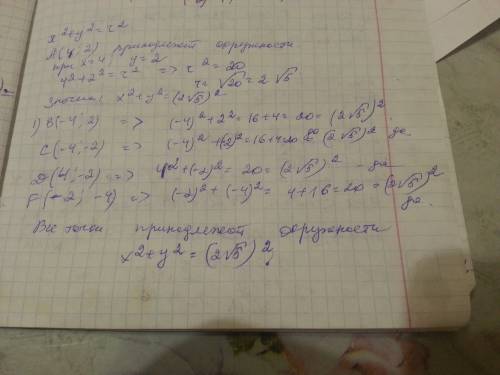 x²+y²=r²
A(4; 2) принадлежит окружности
при x=4, y=2
4²+2²=r² => r²=20
r=√20=2√5
Значит, x²+y²=(2√5)²
1) B(-4; 2) => (-4)²+2²=16+4=20=(2√5)²
C(-4; -2) => (-4)²+(-2)²=16+4=20 (2√5)² да.
D(4; -2) => 4²+(-2)²=20=(2√5)² - да
F(-2; -4) => (-2)²+(-4)²=4+16=20=(2√5)²
да.
Все точки принадлежат окружности
x²+y²=(2√5)²